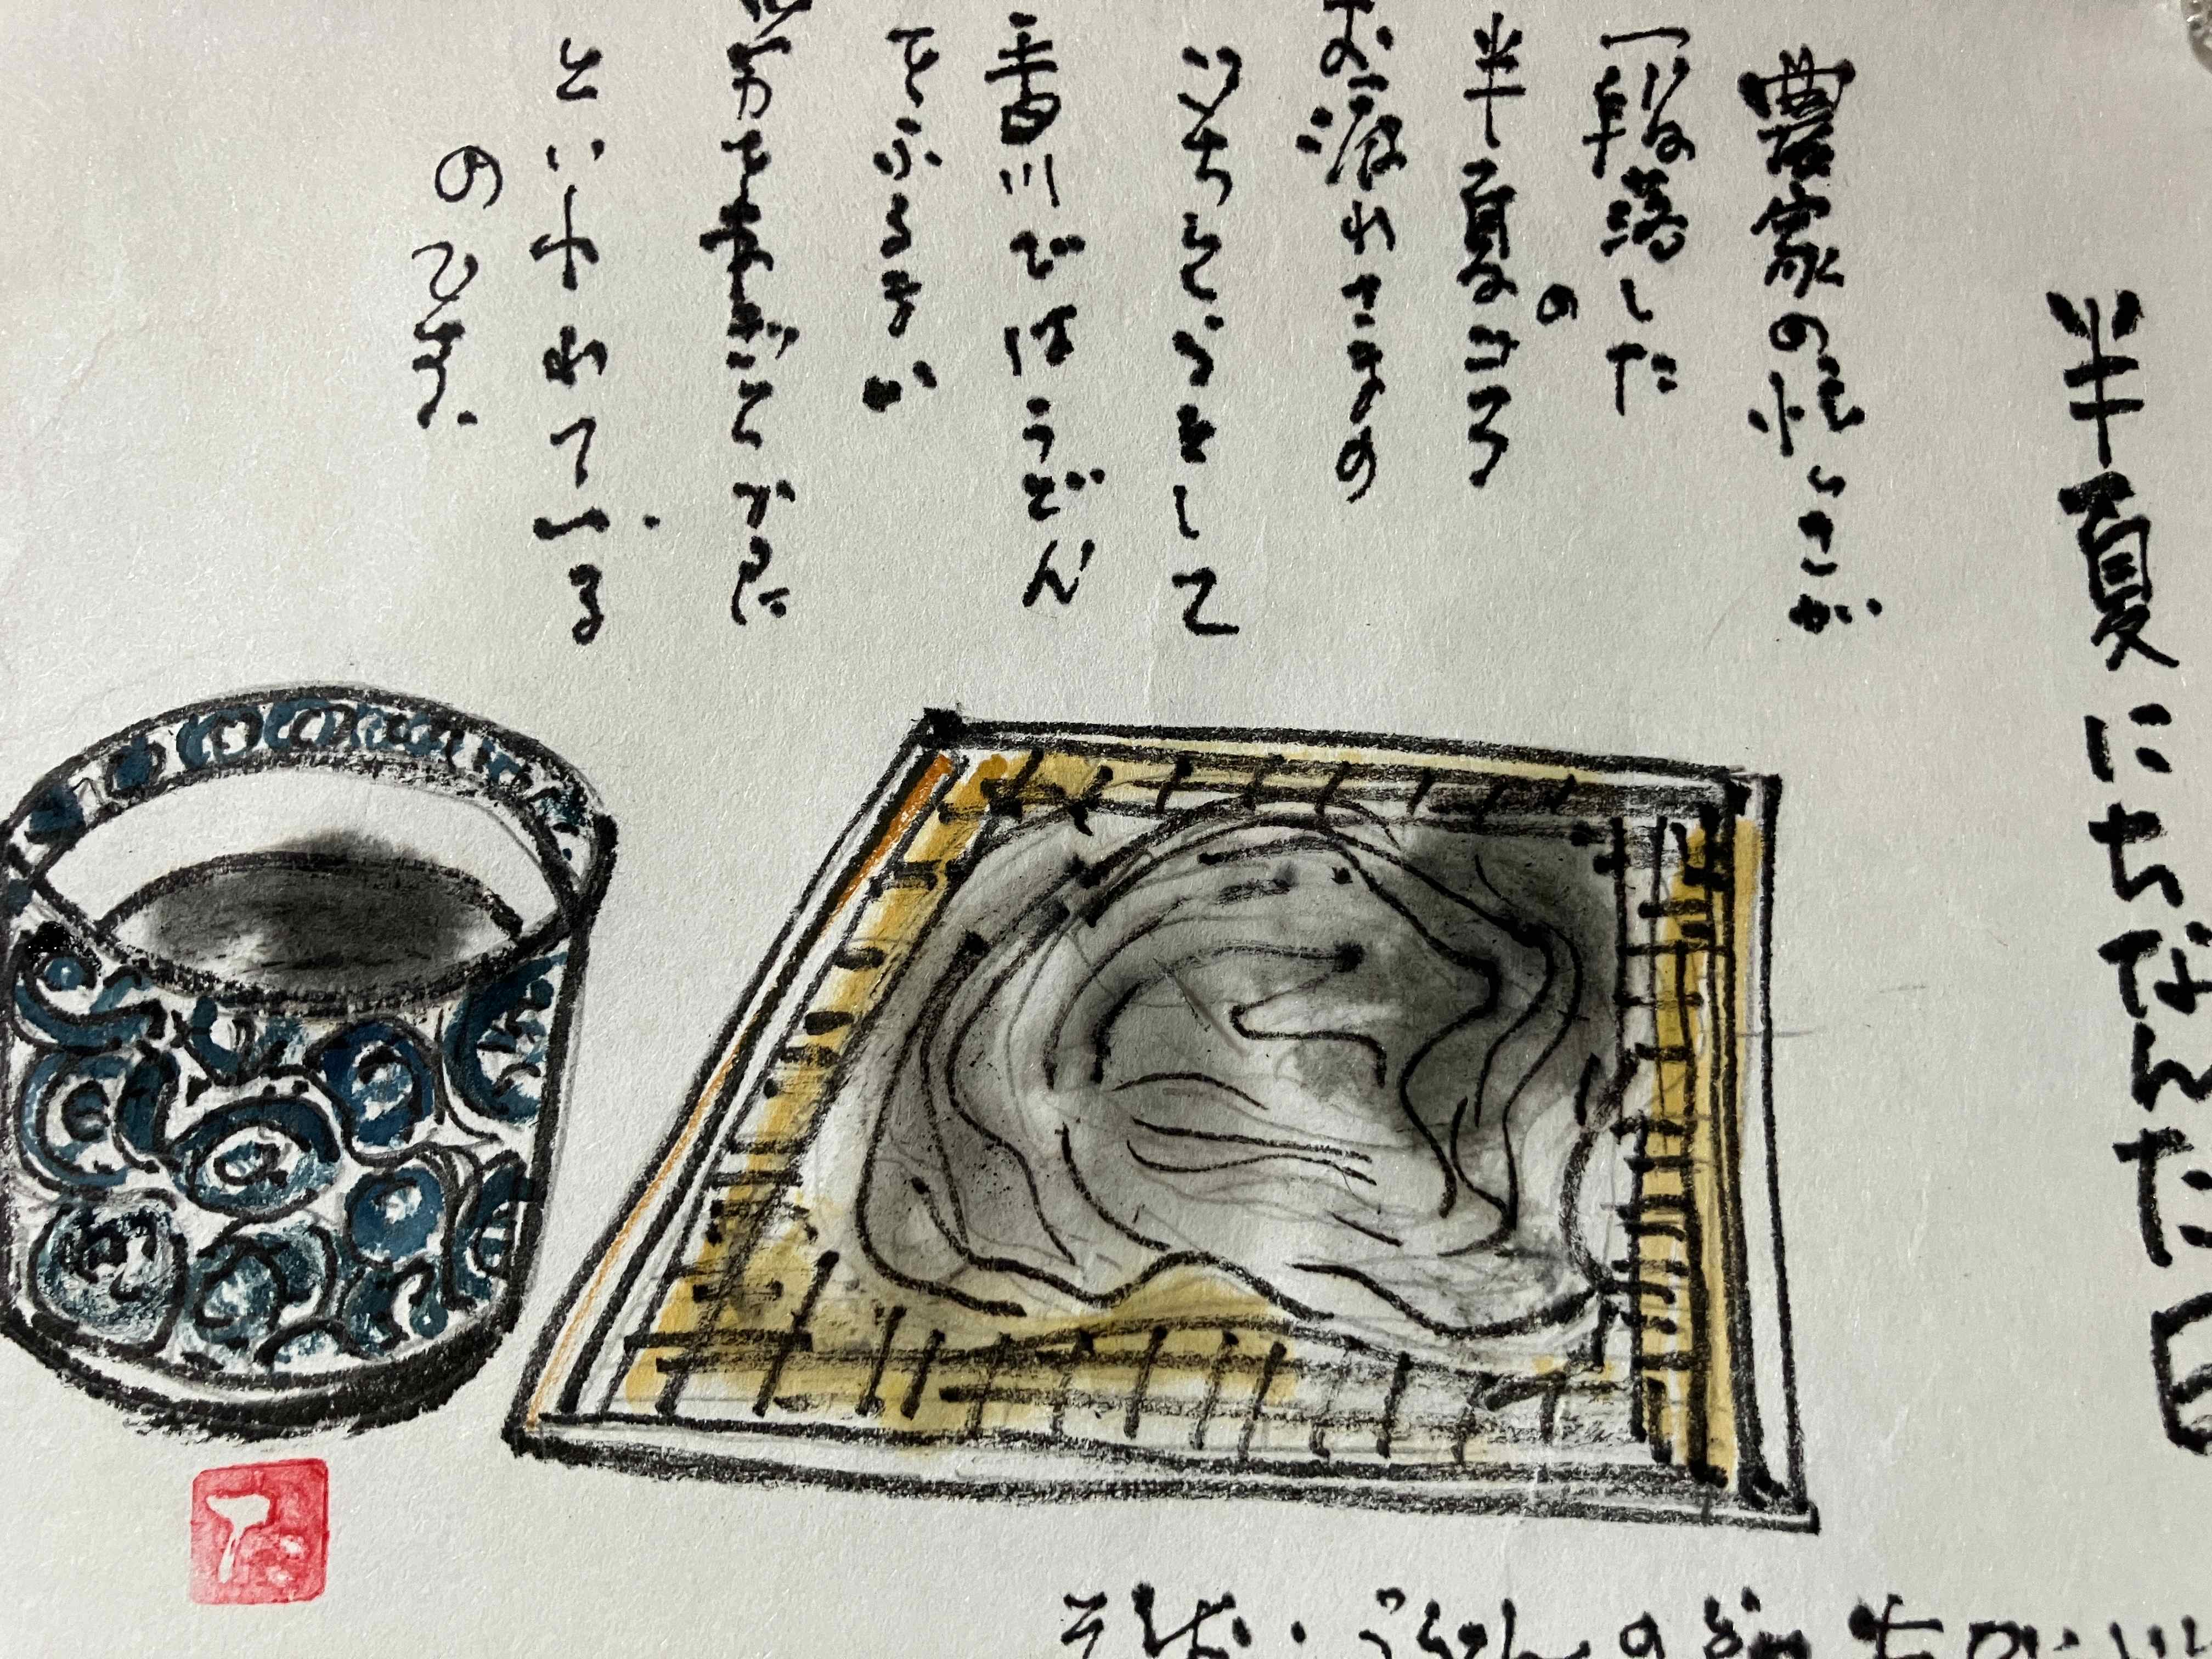 半夏にちなんた
農家の忙しさが
一段落した
半夏のコロ
お疲れさまの
ごちそうをして
香川ではうどん
をふるまい
労をねぎらった
といわれている
のです。
そば・うどんの